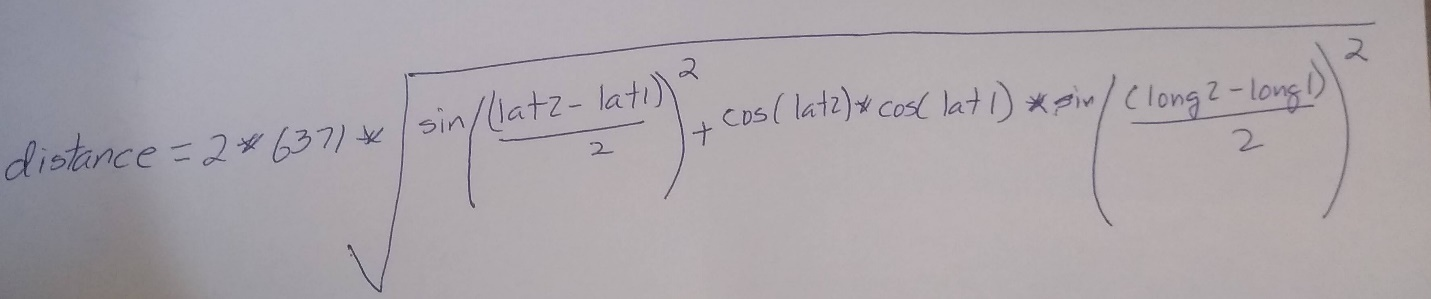 distance = 2 * 6371 * √(sin((lat2 - lat1)/2)² + cos(lat2) * cos(lat1) * sin((long2 - long1)/2)²)